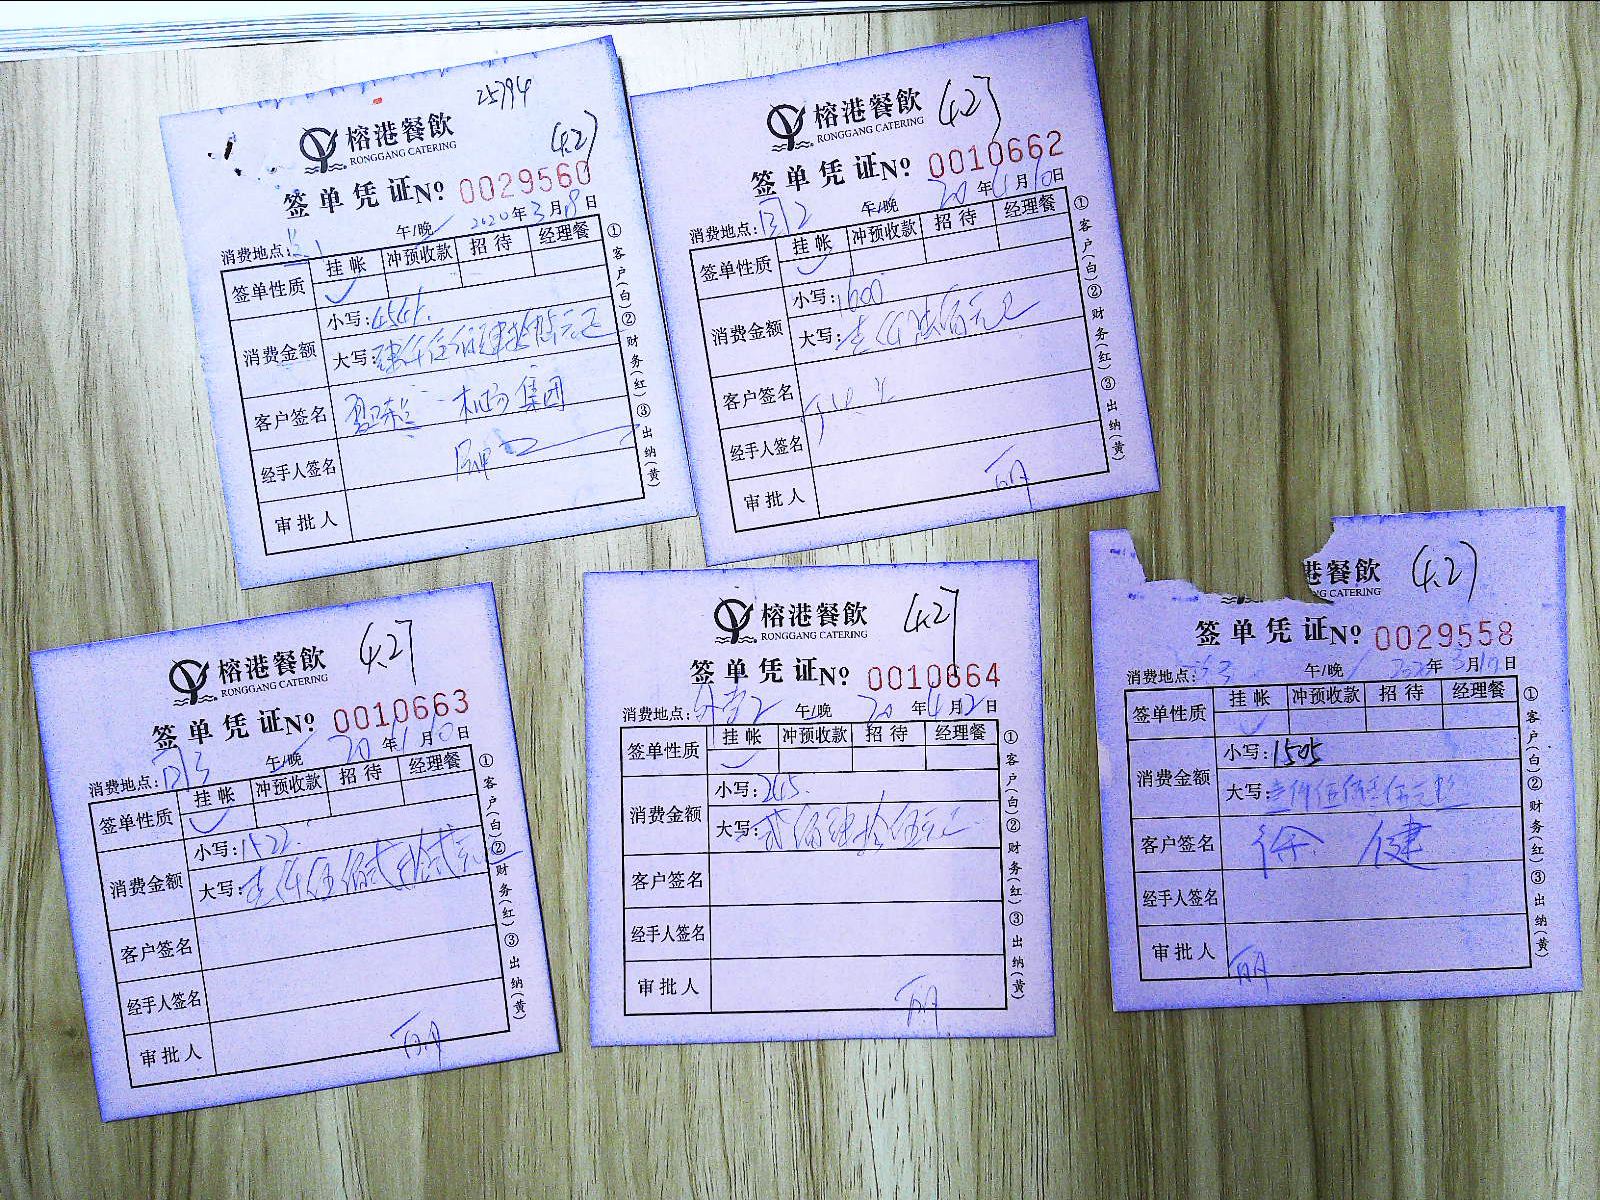 25794
榕港餐飲
RONGGANG CATERING
(4.27
签单凭证№ 0029560
消费地点: 午/晚 2020年3月8日
签单性质 挂帐 冲预收款 招待 经理餐
✓
消费金额 小写:4546.
大写:
客户签名 机场集团
经手人签名
审批人
①客户(白)②财务(红)③出纳(黄)
榕港餐飲
RONGGANG CATERING
(4.27
签单凭证№ 0010662
消费地点: 午/晚 20年月10日
签单性质 挂帐 冲预收款 招待 经理餐
✓
消费金额 小写:1600
大写:壹仟陆佰元正
客户签名
经手人签名
审批人
①客户(白)②财务(红)③出纳(黄)
榕港餐飲
RONGGANG CATERING
(4.27
签单凭证№ 0010663
消费地点: 午/晚 20年月10日
签单性质 挂帐 冲预收款 招待 经理餐
✓
消费金额 小写:1522.
大写:壹仟伍佰贰拾贰元
客户签名
经手人签名
审批人
①客户(白)②财务(红)③出纳(黄)
榕港餐飲
RONGGANG CATERING
(4.27
签单凭证№ 0010664
消费地点: 午/晚 20年4月2日
签单性质 挂帐 冲预收款 招待 经理餐
✓
消费金额 小写:265.
大写:贰佰陆拾伍元正
客户签名
经手人签名
审批人
①客户(白)②财务(红)③出纳(黄)
港餐飲
CATERING
(4.27)
签单凭证№ 0029558
消费地点: 午/晚 年月17日
签单性质 挂帐 冲预收款 招待 经理餐
✓
消费金额 小写:1505
大写:壹仟伍佰零伍元正
客户签名 徐健
经手人签名
审批人
①客户(白)②财务(红)③出纳(黄)